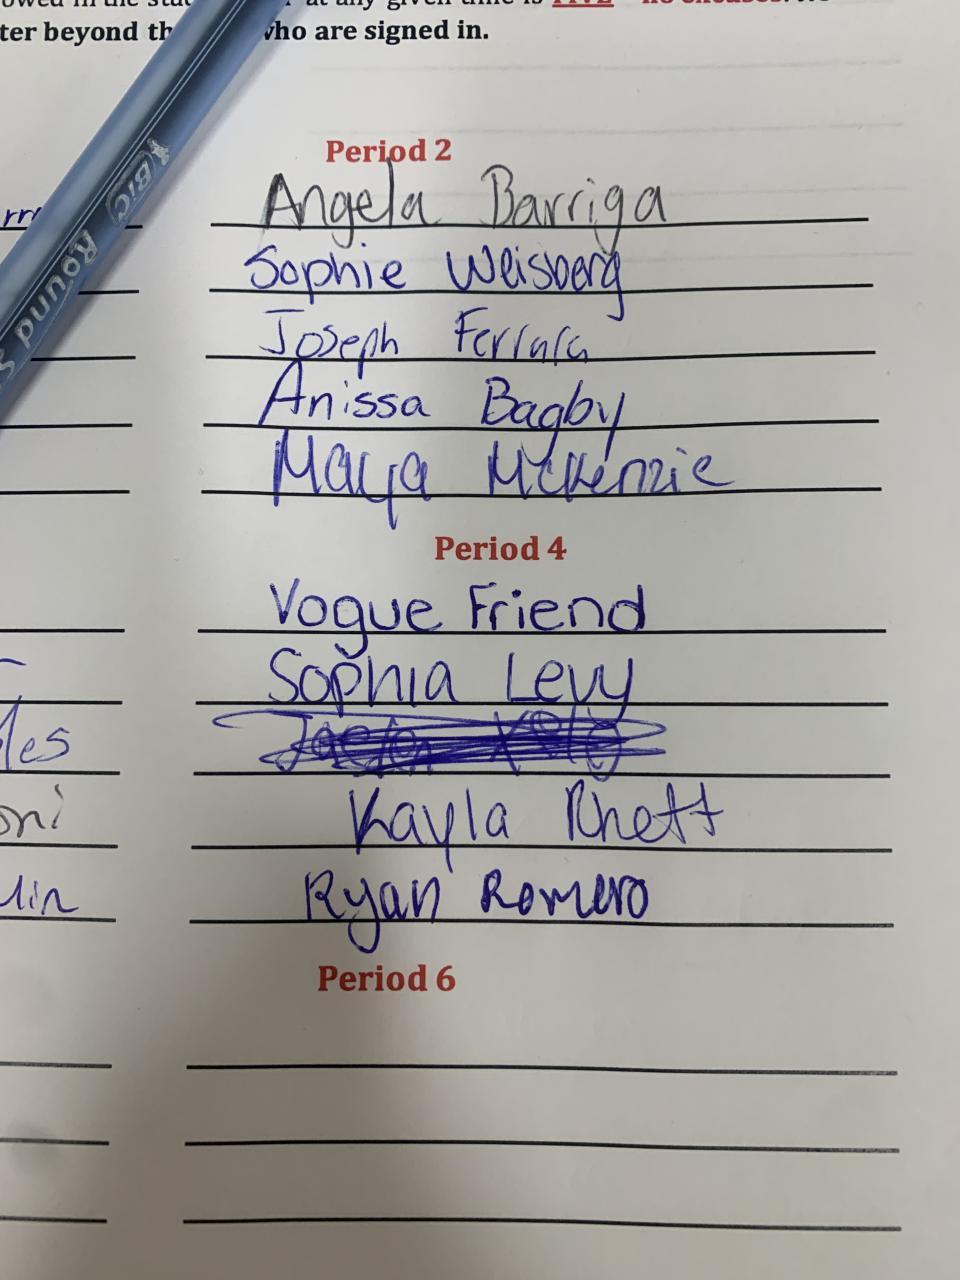 at any given time is FIVE – no excuses.
ter beyond th who are signed in.
BIC Round S
Period 2
Angela Barriga
Sophie Weisberg
Joseph Ferrara
Anissa Bagby
Maya McKenzie
Period 4
Vogue Friend
Sophia Levy
les
oni Kayla Rhett
Ryan Romero
Period 6